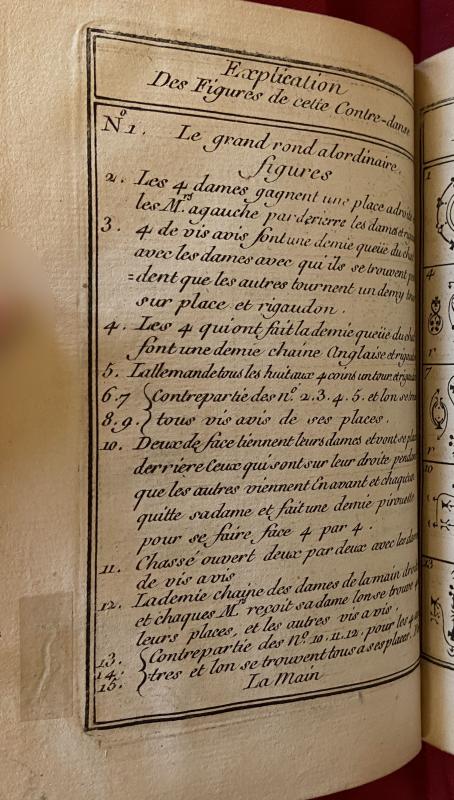 Explication
Des Figures de cette Contre-danse
Nº1. Le grand rond alordinaire.
figures
2. Les 4 dames gagnent une place adroite
les Mrs agauche parderierre les dames et
3. 4 de vis avis font une demie queüe du chat
avec les dames avec qui ils se trouvent
=dent que les autres tournent un demy
sur place et rigaudon.
4. Les 4 qui ont fait la demie queüe du chat
font une demie chaine Anglaise et
5. Lallemande tous les huit aux 4 coins un tour et
6.7 Contrepartie des nº. 2.3.4.5. et lon se
8.9. tous vis avis de ses places.
10. Deux de face tiennent leurs dames et vont se
derrière Ceux qui sont sur leur droite
que les autres viennent En avant et chaqu'un
quitte sa dame et fait une demie pirouette
pour se faire face 4 par 4.
11. Chassé ouvert deux par deux avec les dames
de vis avis
12. La demie chaine des dames de la main droite
et chaques Mrs reçoit sa dame lon se trouve
leurs places, et les autres vis avis.
13. Contrepartie des Nº. 10.11.12. pour les 4
14. tres et lon se trouvent tous a ses places.
15. La Main
1
4
7
10
13